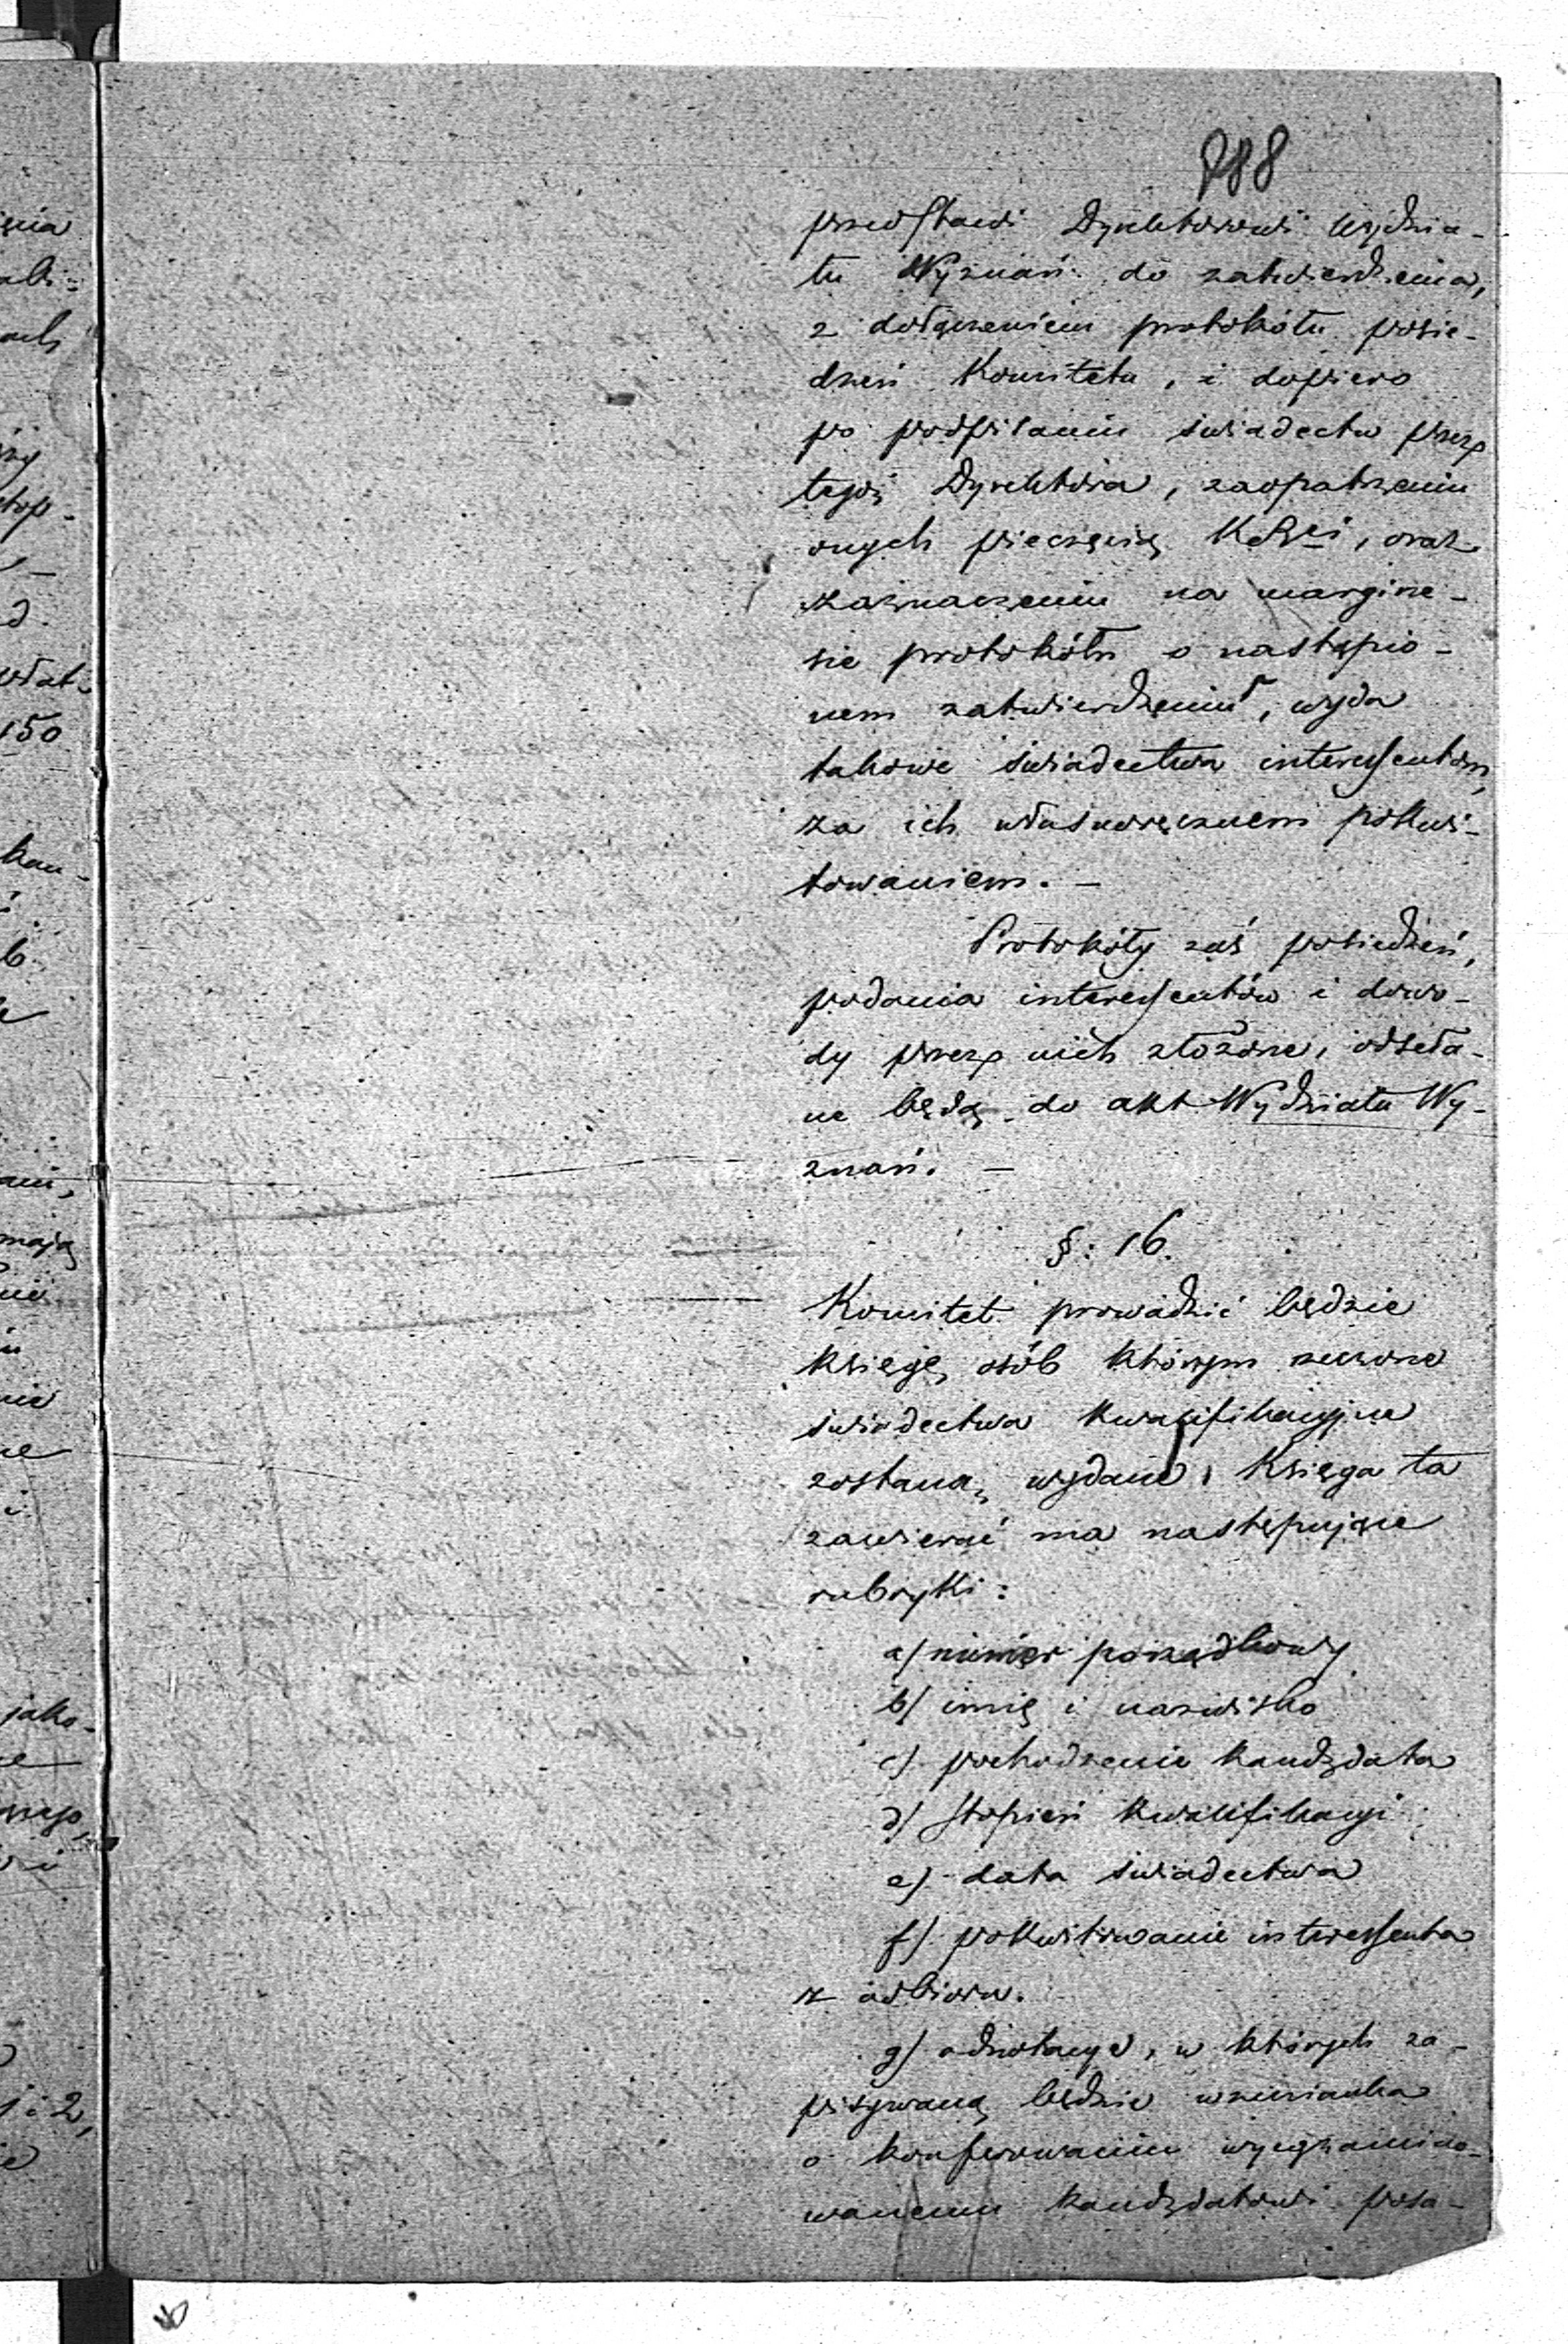 888
przedstawi Dyrektorowi Wydzia-
łu Wyznań do zatwierdzenia,
z dołączeniem protokółu posie-
dzeń Komitetu, i dopiero
po podpisaniu świadectw przez
tegoż Dyrektora, zaopatrzeniu
onych pieczęcią, oraz
zaznaczeniu na margine-
sie protokółu o nastąpio-
nem zatwierdzeniu, wyda
takowe świadectwa interessentom,
za ich własnoręcznem pokwi-
towaniem. —
Protokóły zaś posiedzeń,
podania interessentów i dowo-
dy przez nich złożone, odseła-
ne będą do akt Wydziału Wy-
znań. —
§: 16.
Komitet prowadzić będzie
księgę osób którym
świadectwa kwalifikacyjne
zostaną wydane, Księga ta
zawierać ma następujące
rubryki:
a/ numer porządkowy
b/ imię i nazwisko
c/ pochodzenie kandydata
d/ stopień kwalifikacyi
e/ data świadectwa
f/ pokwitowanie interessenta
z odbioru.
g/ adnotacye, w których za-
pisywaną będzie wzmianka
o konferowaniu wyegzamino-
wanemu kandydatowi posa-
ścia
kan-
150
mają
jako-
i 2,